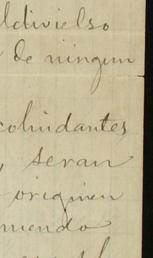 ldivielso
de ningun
colindantes
seran
originen
miendo